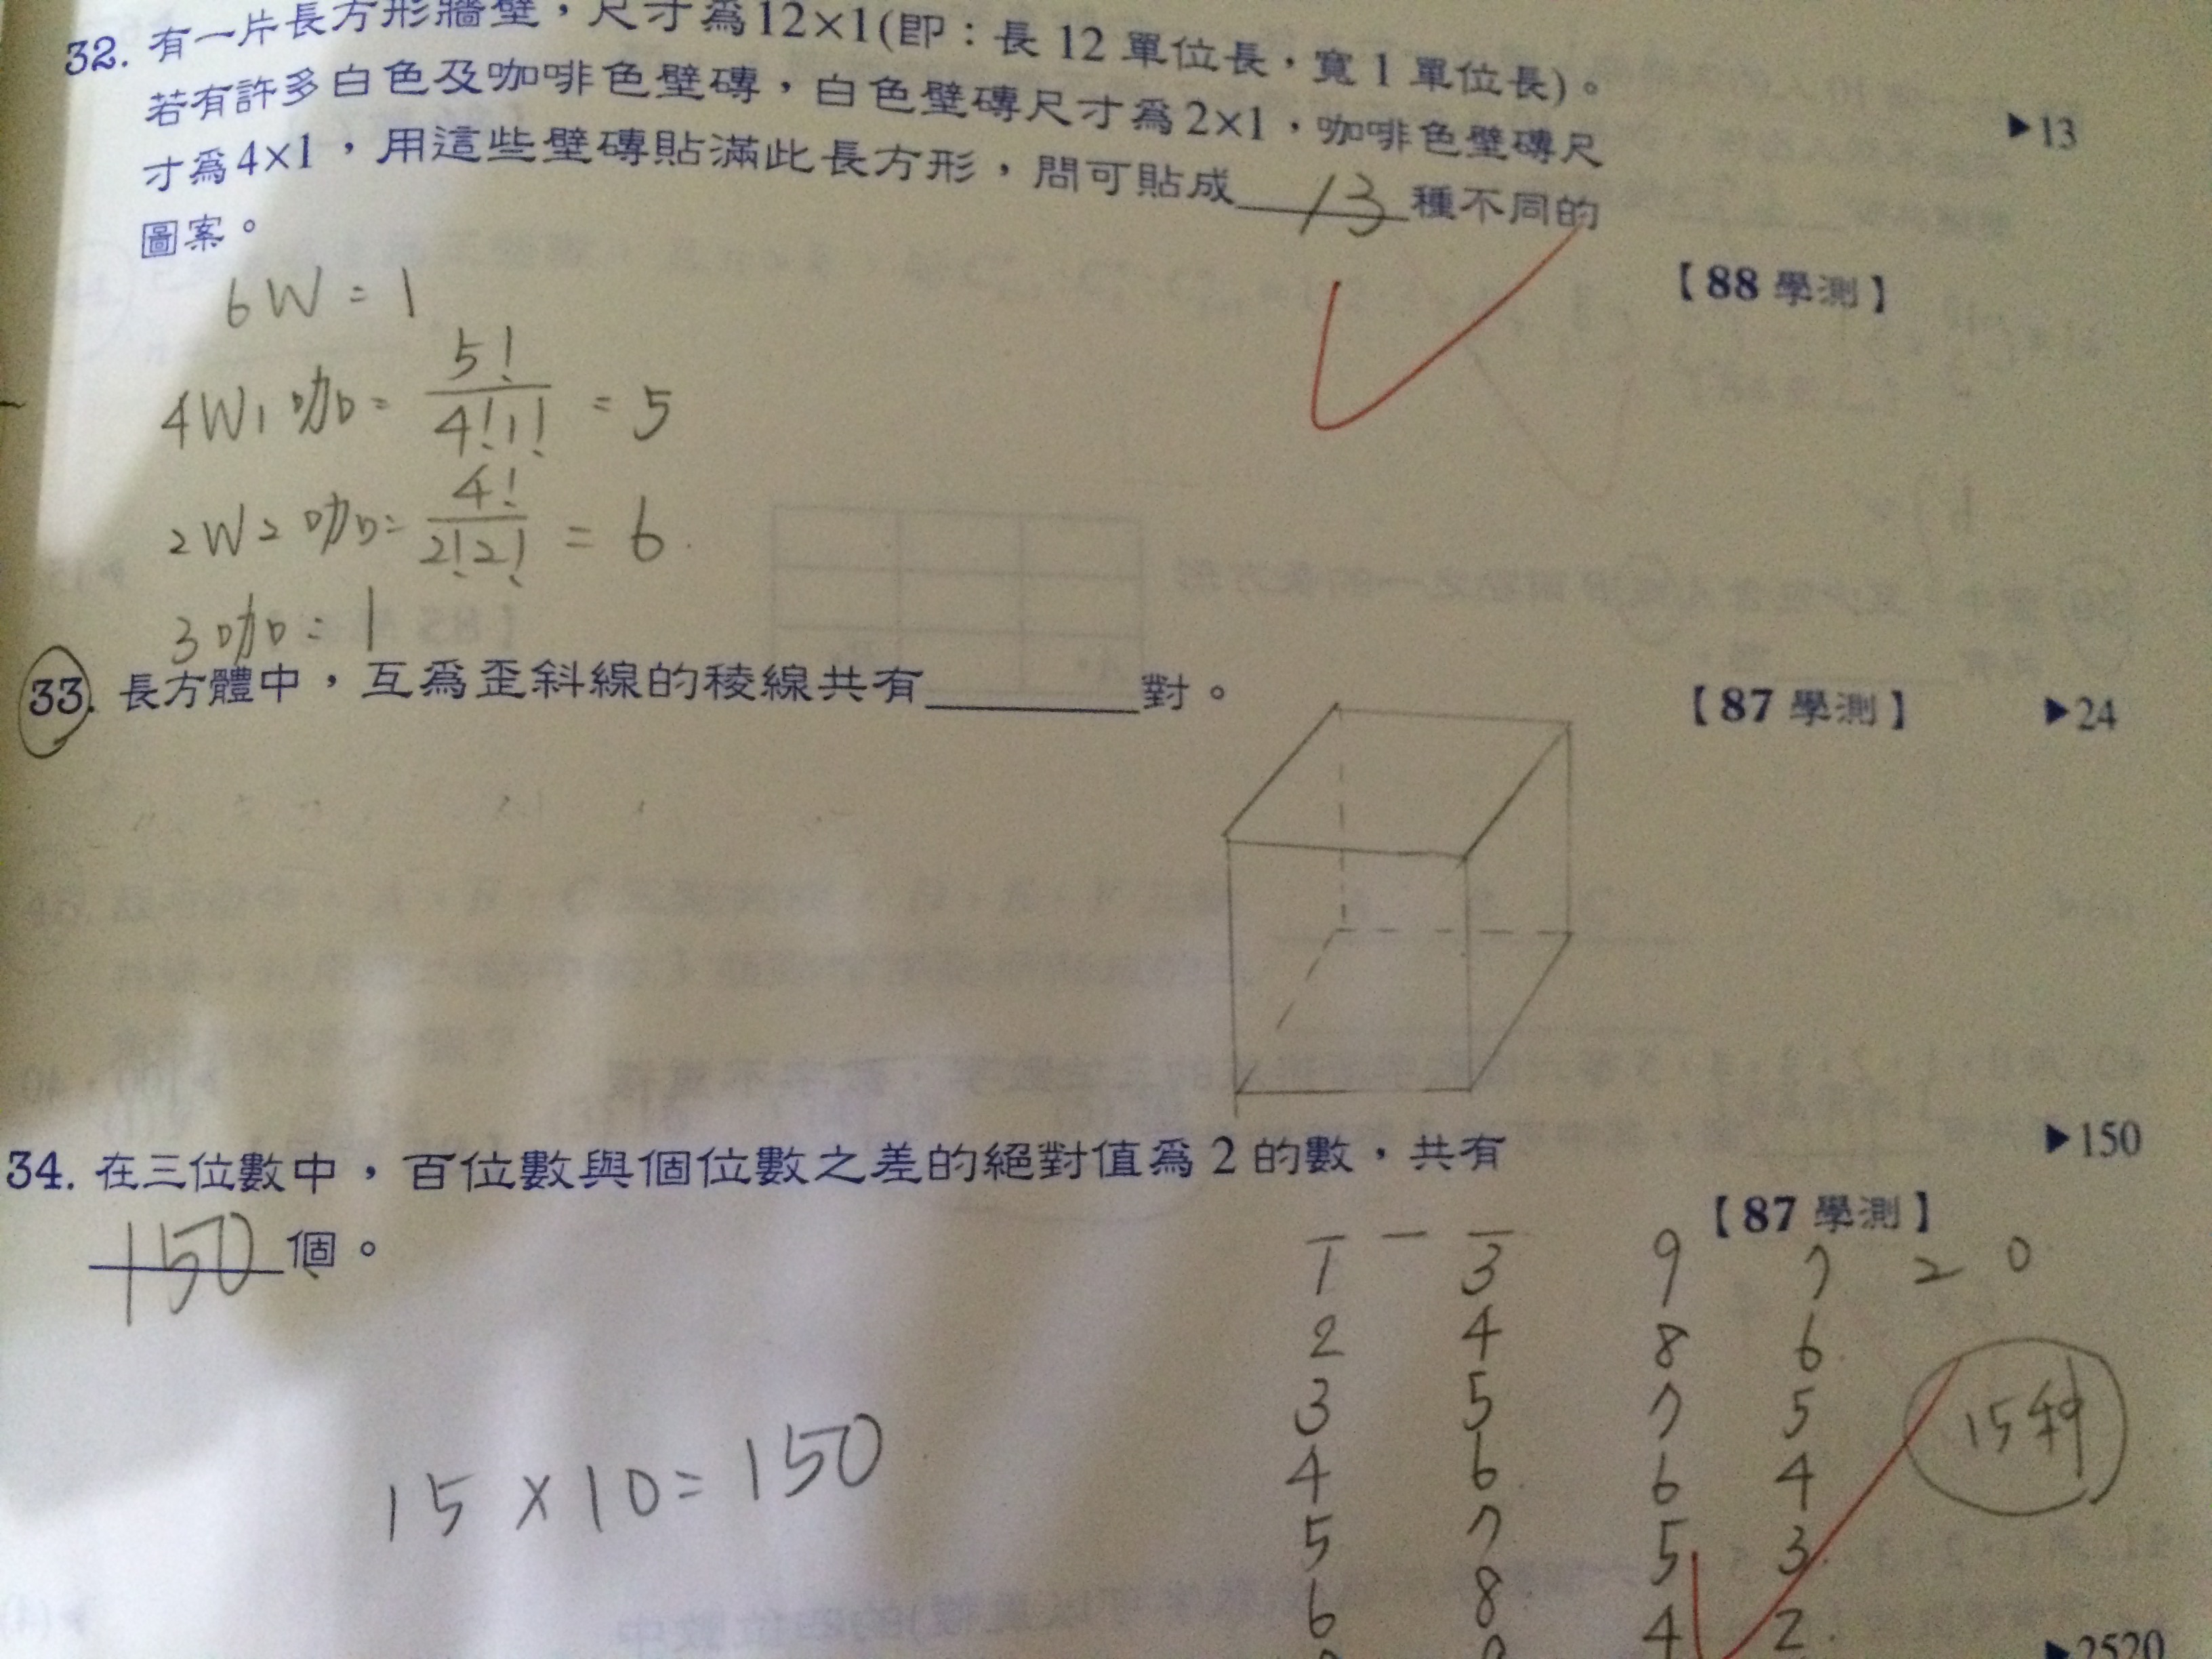 32. 有一片長方形牆壁,尺寸為12×1(即:長 12 單位長,寬 1 單位長)。
若有許多白色及咖啡色壁磚,白色壁磚尺寸為2×1,咖啡色壁磚尺
▶13
寸為4×1,用這些壁磚貼滿此長方形,問可貼成 13 種不同的
圖案。
【88 學測】
6W = 1
4W1咖 = 5!/4!1! = 5
2W2咖 = 4!/2!2! = 6
3咖 = 1
33. 長方體中,互為歪斜線的稜線共有________對。
【87 學測】 ▶24
34. 在三位數中,百位數與個位數之差的絕對值為 2 的數,共有
▶150
150 個。
【87 學測】
1 3 9 7 2 0
2 4 8 6
3 5 7 5
15種
4 6 6 4
15 × 10 = 150
5 7 5 3
6 8 4 2
▶2520